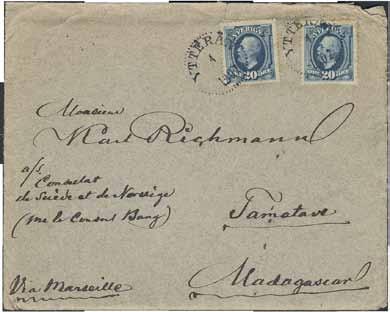 YTTERÅ
1
SVERIGE
20
YTTER
SVERIGE
20
Monsieur
Karl Richmann
a/s
Consulat
de Suède et de Norvège
(Mr le Consul Bang)
Tamatave
à
Madagascar
Via Marseille